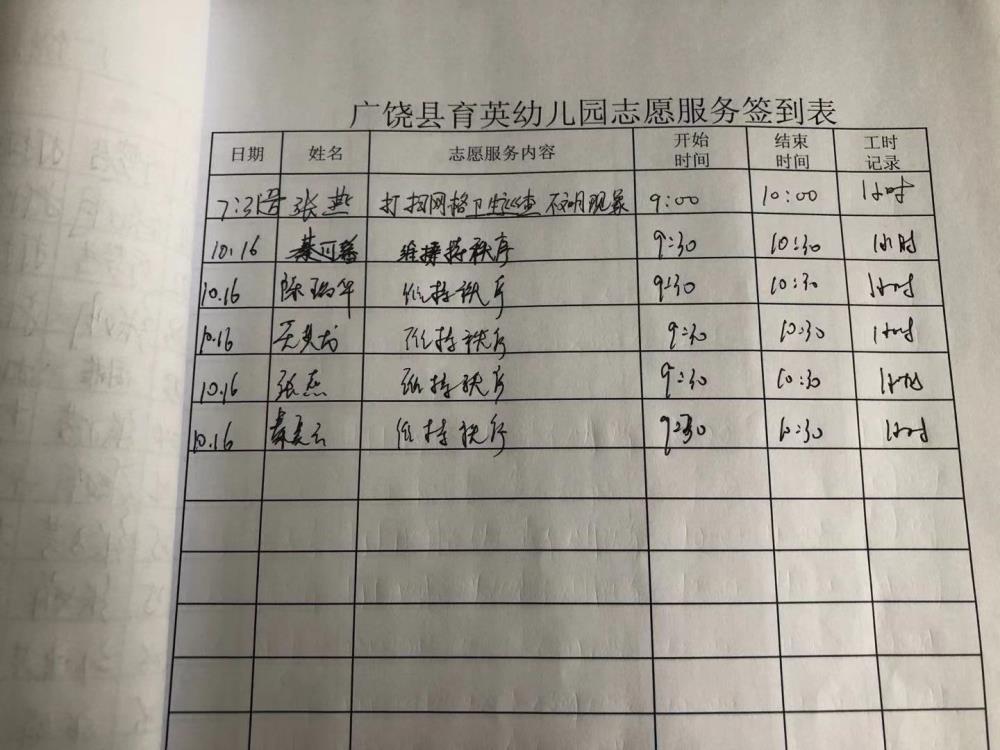 广饶县育英幼儿园志愿服务签到表
日期 姓名 志愿服务内容 开始时间 结束时间 工时记录
7:31号 张燕 打扫网格卫生巡查 不文明现象 9:00 10:00 1小时
10.16 维持秩序 9:30 10:30 1小时
10.16 陈瑞华 维持秩序 9:30 10:30 1小时
10.16 维持秩序 9:30 10:30 1小时
10.16 张燕 维持秩序 9:30 10:30 1小时
10.16 维持秩序 9:30 10:30 1小时